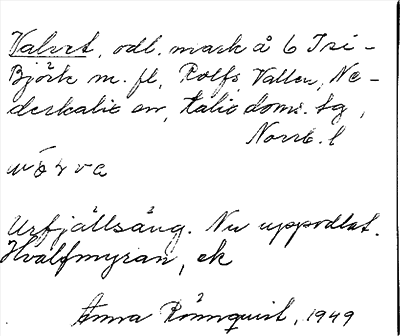 Valvet, odl. mark å 6 Tri-
Björk m. fl, Rolfs, Vallen, Ne-
derkalix sn, Kalix doms. tg,
Norrb. l
Urfjällsäng. Nu uppodlat.
Hvalfmyran, ek
Anna Rönnquist, 1949